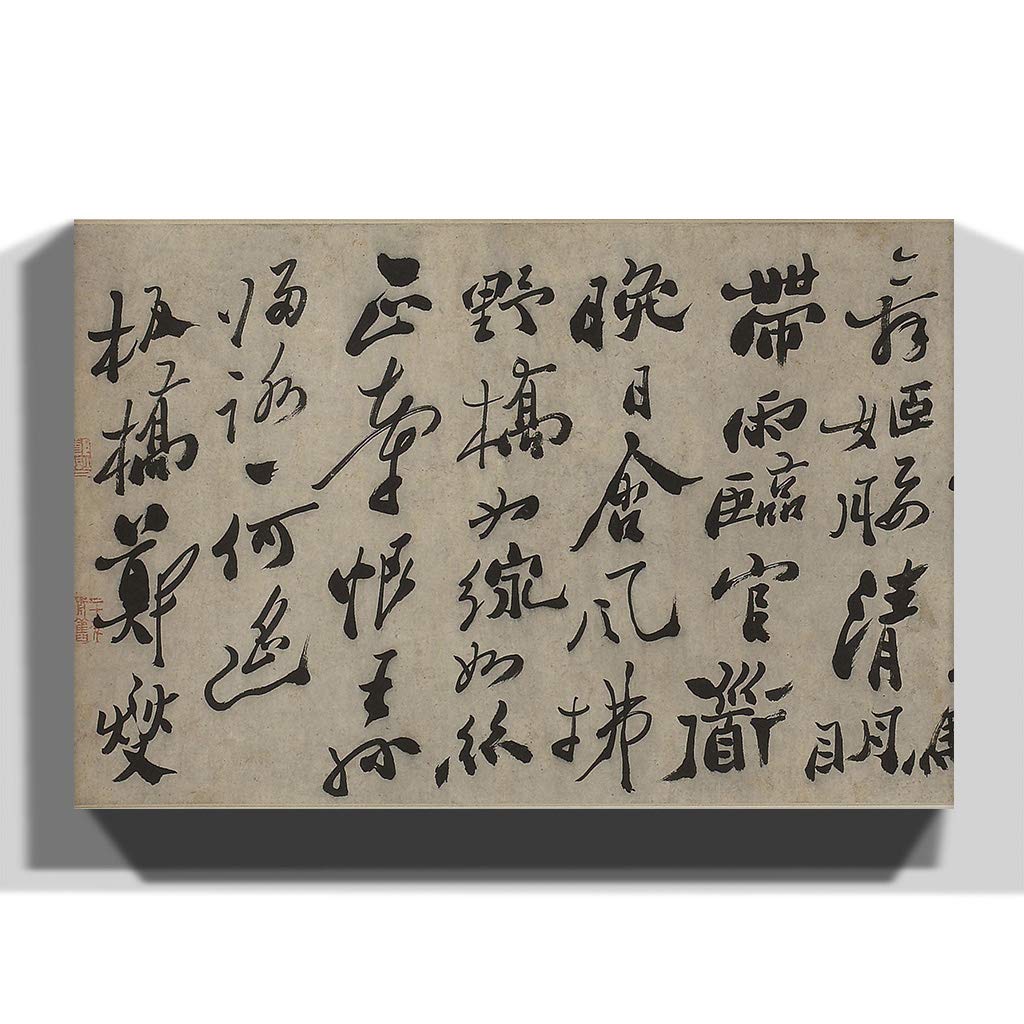 舞姬腰清明
帶雨臨官道
晚日含風拂
野橋如線如絲
正牽恨王孫
歸路一何遙
板橋鄭燮